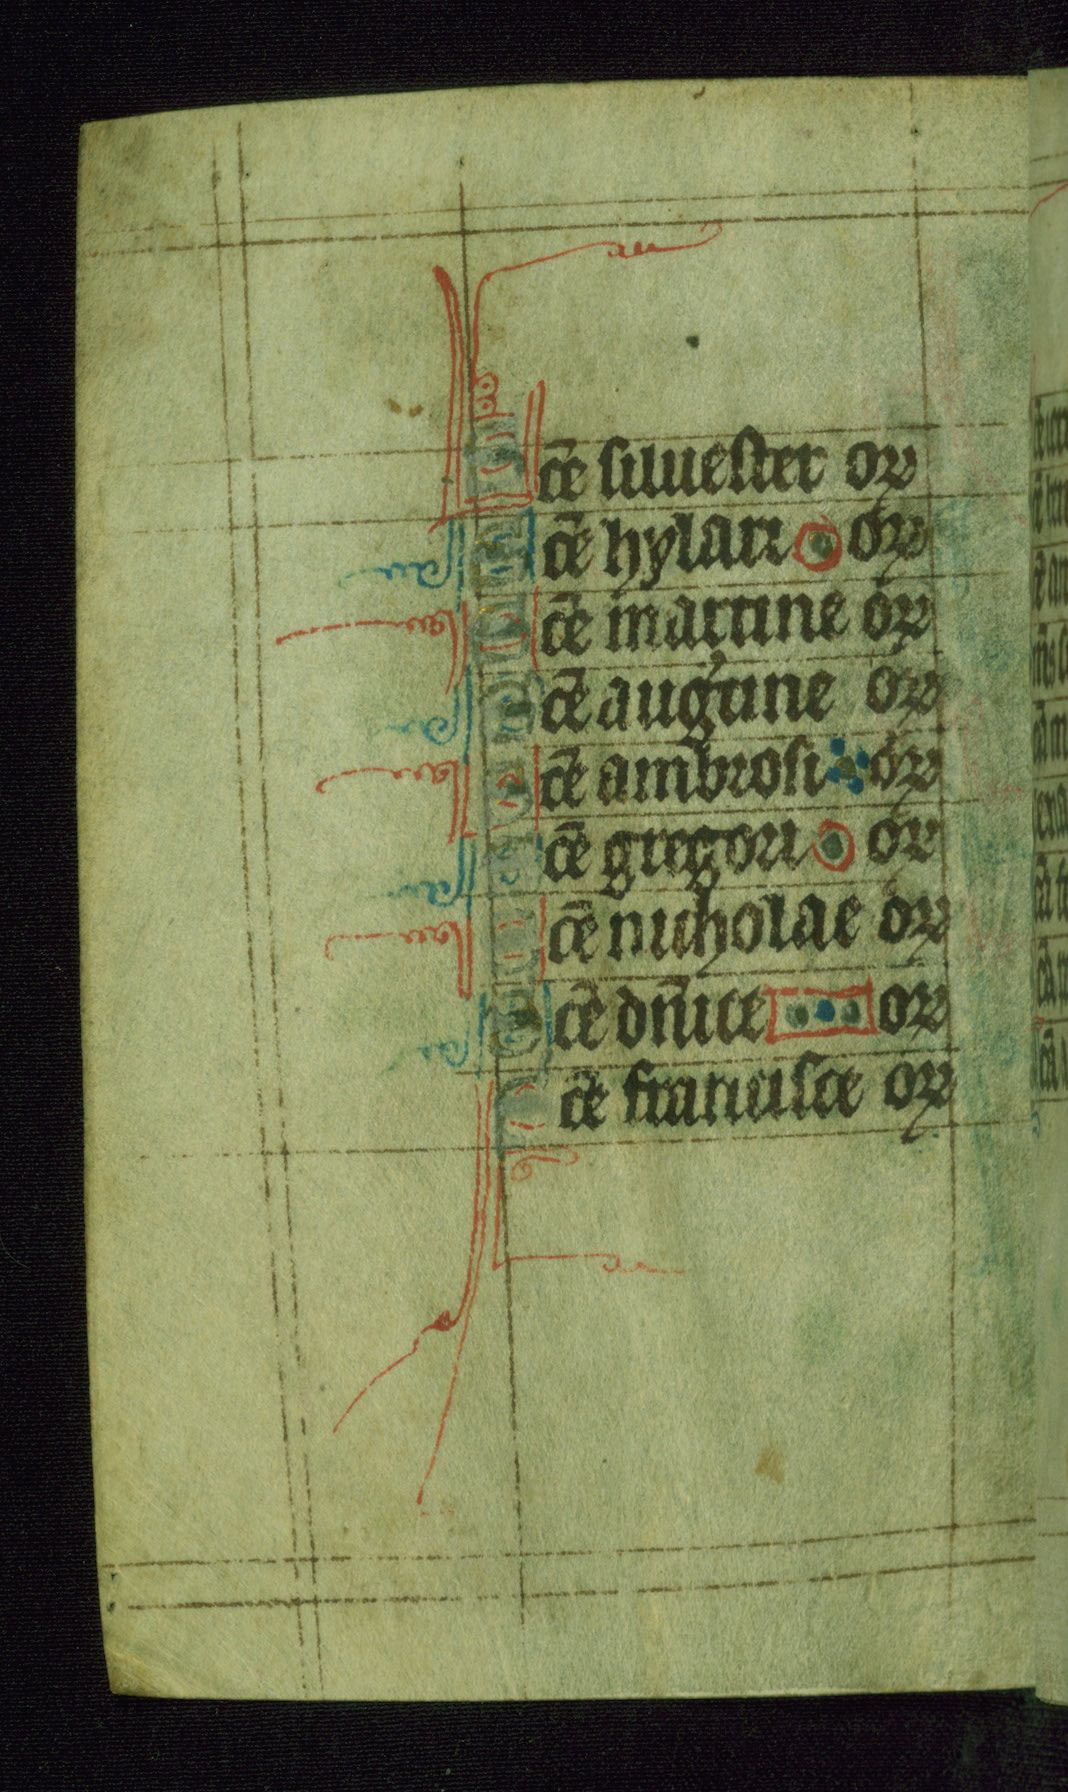 Sc̄e siluester or
Sc̄e hylari or
Sc̄e martine or
Sc̄e augꝰtine or
Sc̄e ambrosi or
Sc̄e gregori or
Sc̄e nicholae or
Sc̄e dn̄ice or
Sc̄e francisce or